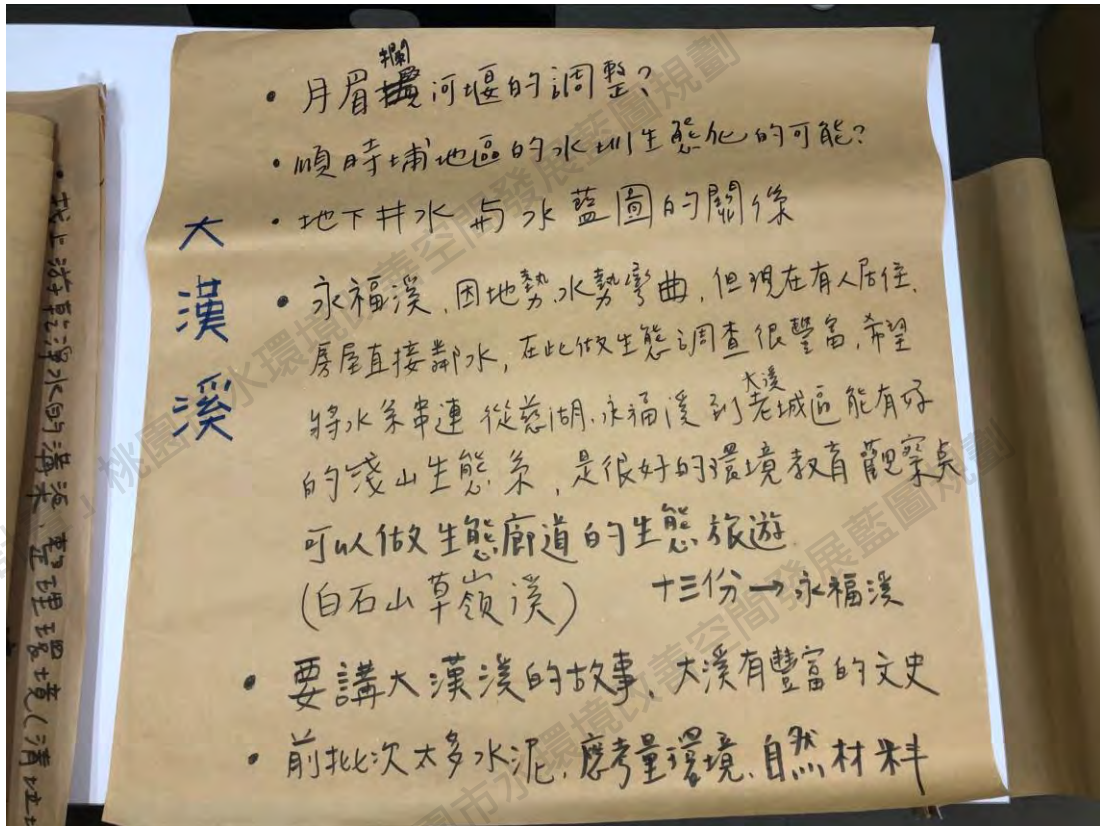 大漢溪
• 月眉攔河堰的調整?
• 順時埔地區的水圳生態化的可能?
• 地下井水與水藍圖的關係
• 永福溪,因地勢、水勢彎曲,但現在有人居住,
房屋直接鄰水,在此做生態調查很豐富,希望
將水系串連 從慈湖、永福溪到大溪老城區能有好
的淺山生態系,是很好的環境教育觀察點
可以做生態廊道的生態旅遊
(白石山草嶺溪) 十三份→永福溪
• 要講大漢溪的故事,大溪有豐富的文史
• 前批次太多水泥,應考量環境、自然材料
整理環境(清
桃園市水環境改善空間發展藍圖規劃